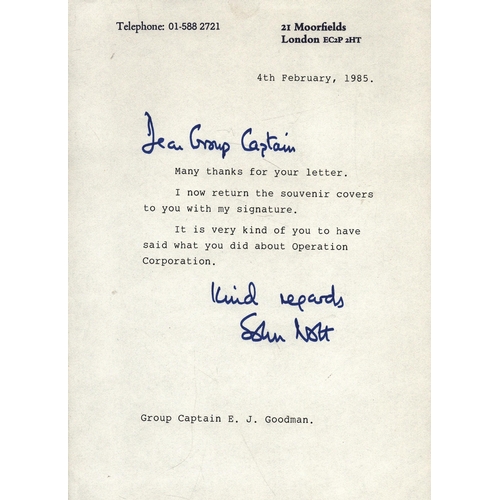 Telephone: 01-588 2721
21 Moorfields
London EC2P 2HT
4th February, 1985.
Dear Group Captain
Many thanks for your letter.
I now return the souvenir covers
to you with my signature.
It is very kind of you to have
said what you did about Operation
Corporation.
Kind regards
John Nott
Group Captain E. J. Goodman.